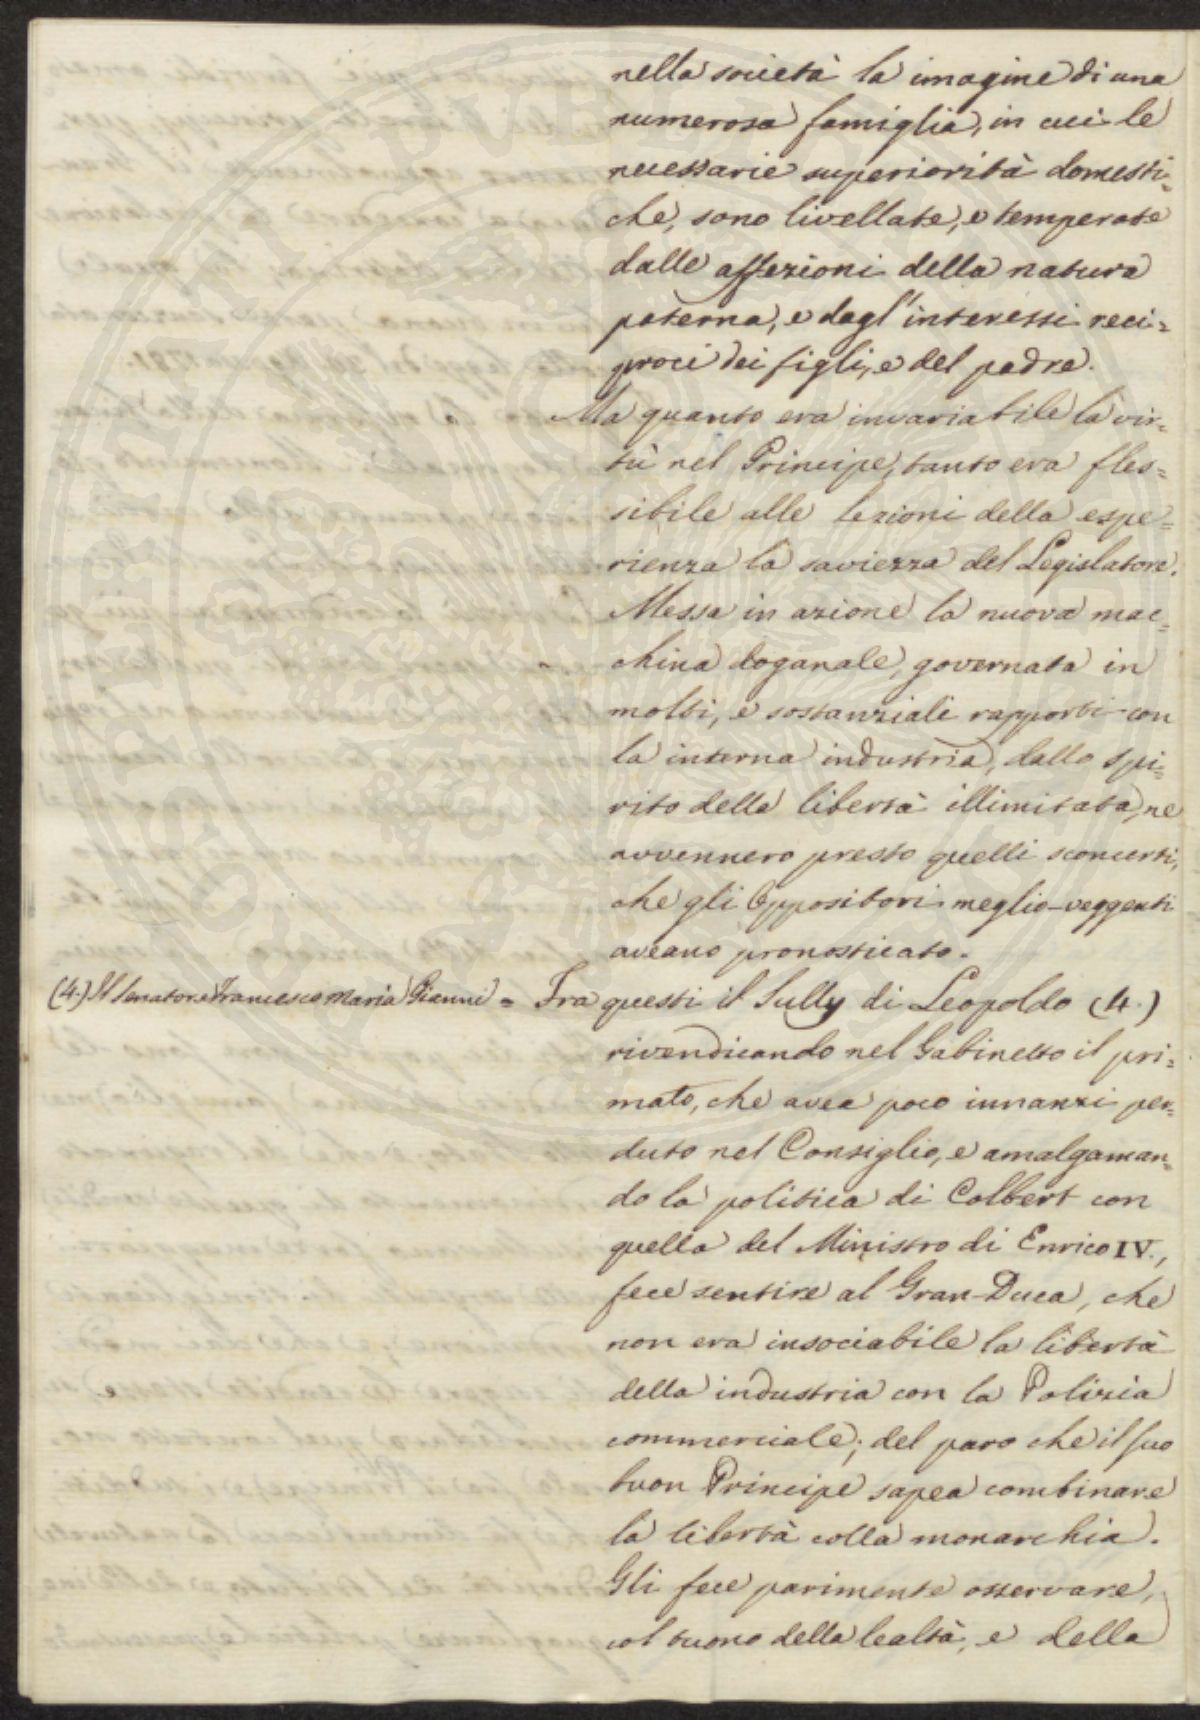 nella società la imagine di una
numerosa famiglia, in cui le
necessarie superiorità domesti=
che, sono livellate, e temperate
dalle affezioni della natura
paterna, e dagl'interessi reci=
proci dei figli, e del padre.
Ma quanto era invariabile la vir=
tù nel Principe, tanto era fles=
sibile alle lezioni della espe=
rienza la saviezza del Legislatore.
Messa in azione la nuova mac=
china doganale, governata in
molti, e sostanziali rapporti con
la interna industria, dallo spi=
rito della libertà illimitata, ne
avvennero presto quelli sconcerti,
che gli Oppositori meglio-veggenti
aveano pronosticato.
(4.) Il Senatore Francesco Maria Gianni = Fra questi il Sully di Leopoldo (4.)
rivendicando nel Gabinetto il pri=
mato, che avea poco innanzi per=
duto nel Consiglio, e amalgaman=
do la politica di Colbert con
quella del Ministro di Enrico IV.,
fece sentire al Gran-Duca, che
non era insociabile la libertà
della industria con la Polizia
commerciale; del paro che il suo
buon Principe sapea combinare
la libertà colla monarchia.
Gli fece parimente osservare,
col tuono della lealtà, e della